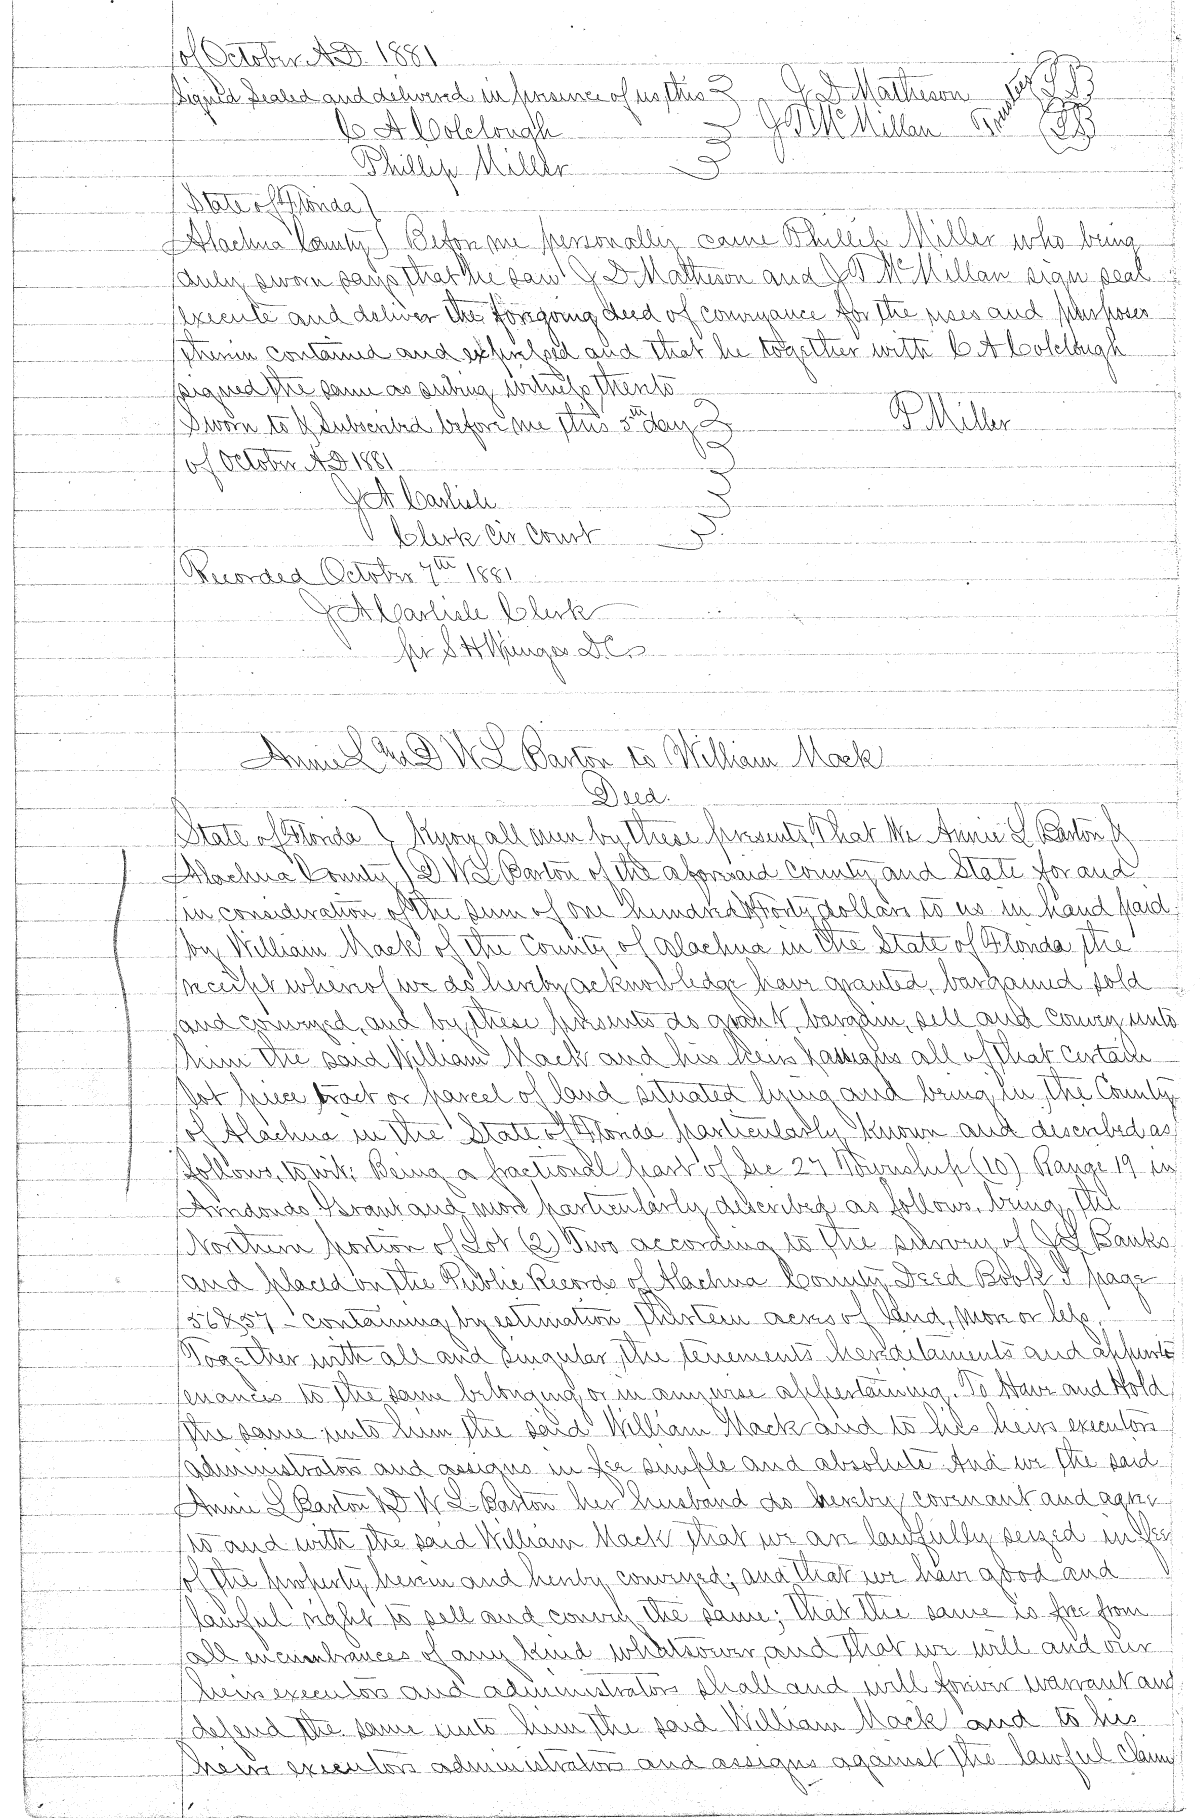 of October A.D. 1881
Signed Sealed and delivered in presence of us, this J D Matheson Trustees LS
C A Colclough J T McMillan LS
Phillip Miller
State of Florida
Alachua County Before me personally came Phillip Miller who being
duly sworn says, that he saw J D Matheson and J T McMillan sign seal
execute and deliver the foregoing deed of conveyance for the uses and purposes
therin contained and expressed and that he together with C A Colclough
signed the same as subing witness thereto
Sworn to & Subscribed before me this 5th day P Miller
of October AD 1881
J A Carlisle
Clerk Cir Court
Recorded October 7th 1881
J A Carlisle Clerk
pr S H D.C.
Annie L and D W L Barton to William Mack
Deed.
State of Florida Know all men by these presents, That We Annie L Barton &
Alachua County D W L Barton of the aforesaid County and State for and
in consideration of the sum of one hundred & Forty dollars to us in hand paid
by William Mack of the County of Alachua in the State of Florida the
receipt whereof we do hereby acknowledge have granted, bargained sold
and conveyed, and by these presents do grant, bargain, sell and convey unto
him the said William Mack and his heirs & assigns all of that certain
lot piece tract or parcel of land situated lying and being in the County
of Alachua in the State of Florida particularly known and described as
follows, to wit: Being a fractional part of Sec 27 Township (10) Range 19 in
Arredondo Grant and more particularly described as follows, being the
Northern portion of Lot (2) Two according to the survey of J L Banks
and placed on the Public Records of Alachua County Deed Book I page
56 & 57 - containing by estimation thirteen acres of land, more or less,
Together with all and singular, the tenements hereditaments and appurte
enances to the same belonging or in anywise appertaining. To Have and Hold
the same unto him the said William Mack and to his heirs executors
administrators and assigns in fee simple and absolute And we the said
Annie L Barton & D W L Barton her husband do hereby covenant and agree
to and with the said William Mack that we are lawfully seized in fee
of the property herein and hereby conveyed; and that we have good and
lawful right to sell and convey the same; that the same is free from
all encumbrances of any kind whatsoever, and that we will and our
heirs executors and administrators shall and will forever warrant and
defend the same unto him the said William Mack and to his
heirs executors administrators and assigns against the lawful claim